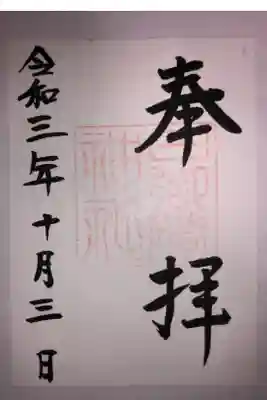 奉拝
令和三年十月三日